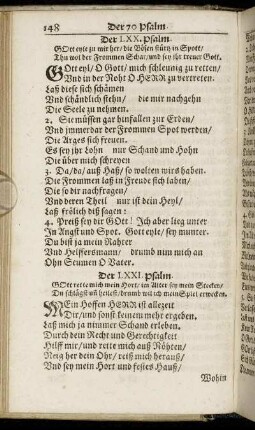 148 Der 70 Psalm.
Der LXX. Psalm.
GOtt eyle zu mir her/ die Bösen stürtz in Spott/
Thu wol der Frommen Schar/ und sey ihr treuer Gott.
GOtt eyl/ O Gott/ mich schleunig zu retten/
Und in der Noht O HERR zu vertreten.
Laß diese sich schämen
Und schändlich stehn/ die mir nachgehn
Die Seele zu nehmen.
2. Sie müssen gar hinfallen zur Erden/
Und jmmerdar der Frommen Spot werden/
Die Arges sich freuen.
Es sey jhr Lohn nur Schand und Hohn
Die über mich schreyen
3. Da/ da/ auß Haß/ so wolten wirs haben.
Die Frommen laß in Freude sich laben/
Die so dir nachfragen/
Und deren Theil nur ist dein Heyl/
Laß frölich diß sagen:
4. Preiß sey dir Gott! Ich aber lieg unter
In Angst und Spot. Gott eyle/ sey munter.
Du bist ja mein Rahter
Und Helffersmann/ drumb nim mich an
Ohn Seumen O Vater.
Der LXXI. Psalm.
GOtt rette mich mein Hort/ im Alter sey mein Stecken/
Du schlägst uñ heilest/ drumb wil ich mein Spiel erwecken.
MEin Hoffen HERR ist allezeit
Dir/ und sonst keinem mehr ergeben.
Laß mich ja nimmer Schand erleben.
Durch dein Recht und Gerechtigkeit
Hilff mir/ und rette mich auß Nöhten/
Neig her dein Ohr/ reiß mich herauß/
Und sey mein Hort und festes Hauß/
Wohin